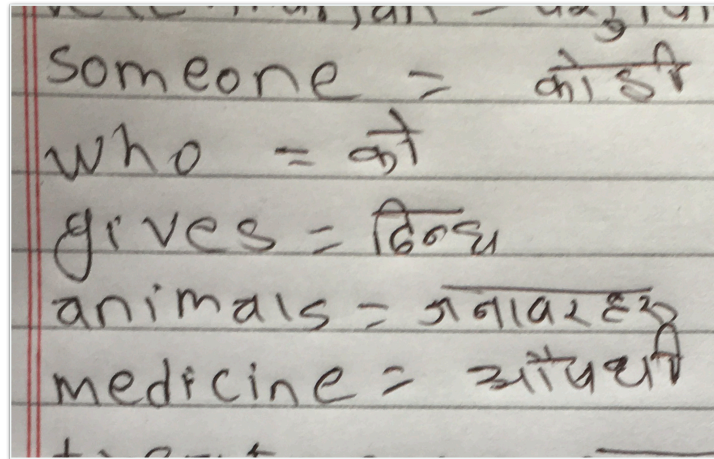 someone = कोही
who = को
gives = दिन्छ
animals = जनावरहरु
medicine = औषधी